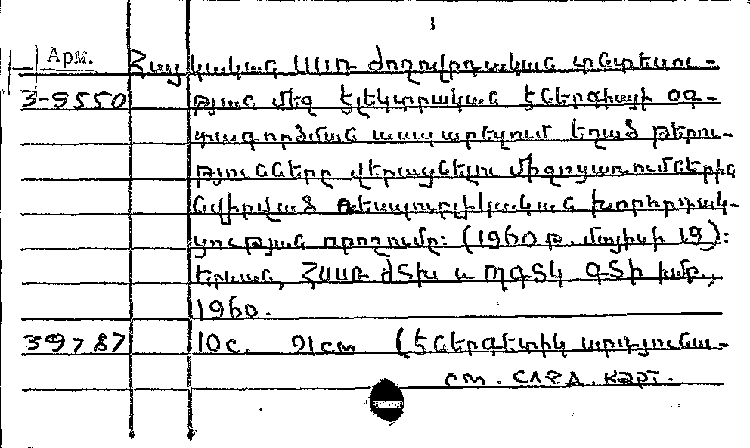 1
Арм. Հայկական ՍՍՌ ժողովրդական տնտեսու-
3-9550 թյան մեջ էլեկտրական էներգիայի օգ-
տագործման ասպարեզում եղած թերու-
թյունները վերացնելու միջոցառումներին
նվիրված ռեսպուբլիկական խորհրդակ-
ցության որոշումը: (1960 թ. մայիսի 19):
Երևան, ՀՍՍՌ ԺՏԽ և ՊԳՏԿ ԳՏԻ խմբ.,
1960.
39787 10 с. 21 см (Էներգետիկ արդյունա-
см. след. карт.